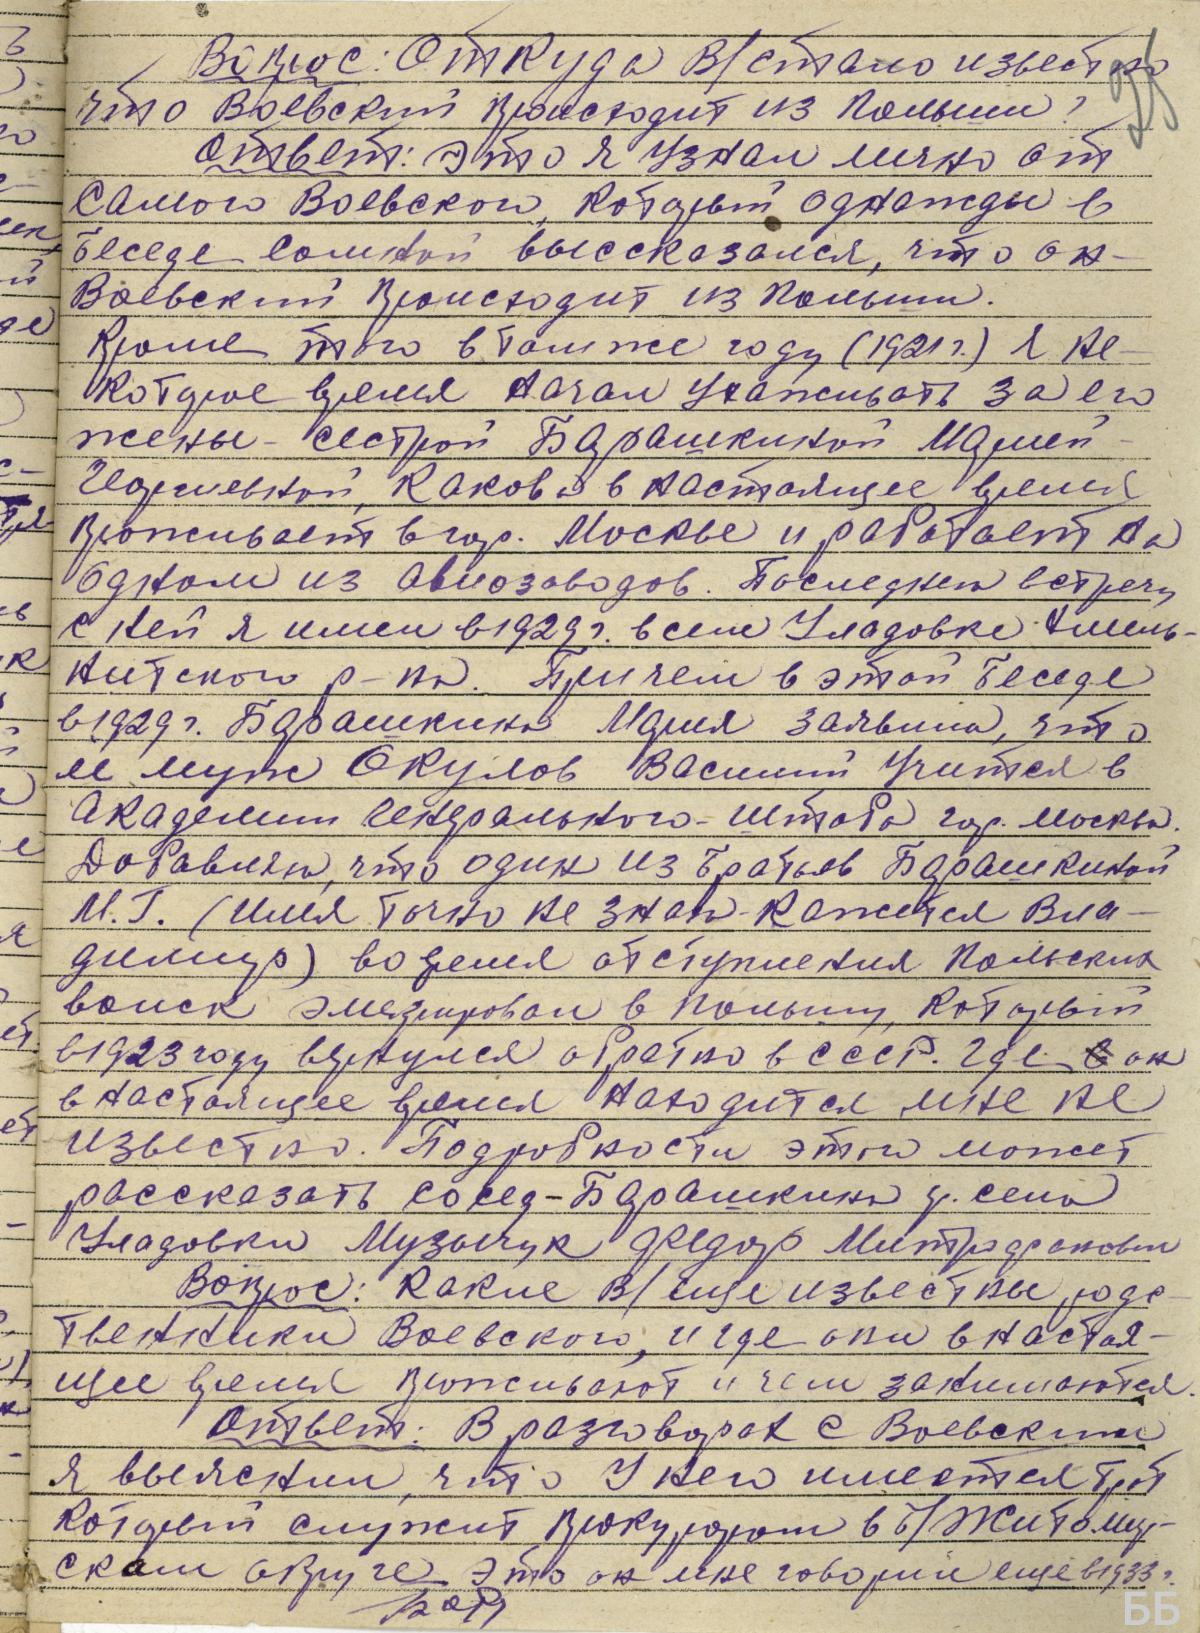 25
Вопрос: Откуда В/стало известно
что Воевский происходит из Польши?
Ответ: Это я узнал лично от
самого Воевского, который однажды в
беседе сомной высказался, что он-
Воевский происходит из Польши.
Кроме того в томже году (1921 г.) я не-
которое время начал ухаживать за его
жены - сестрой Барашкиной Марией-
Георгиевной, какова в настоящее время
проживает в гор. Москве и работает на
одном из авиозаводов. Последнею встречу
с ней я имел в 1929 г. в селе Уладовке
р-на. Причем в этой беседе
в 1929 г. Барашкина Мария заявила, что
ее муж Окулов Василий учится в
Академии Генерального-штаба гор. Москвы.
Добавляю, что один из братьев Барашкиной
М.Г. (имя точно не знаю-кажется Вла-
димир) во время отступления Польских
войск эмегрировал в Польшу, который
в 1923 году вернулся обратно в СССР. Где он
в настоящее время находится мне не
известно. Подробности этого может
рассказать сосед-Барашкина ур. села
Уладовки Музычук Федор Митрофанович
Вопрос: Какие В/еще известны родс-
твенники Воевского, и где они в настоя-
щее время проживают и чем занимаются.
Ответ: В разговорах с Воевским
я выяснил, что у него имеется брат
который служит прокурором в б/Житомир-
ском округе это он мне говорил еще в 1933 г.
ББ